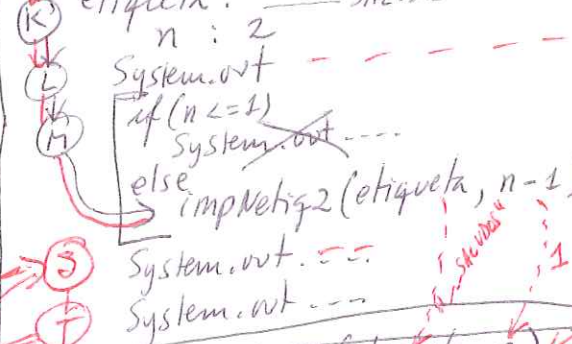 K etiqueta :
n : 2
L System.out
if (n <= 1)
M System.out ....
else
impNetiq2 (etiqueta, n-1
S System.out. ---
"SALUDOS" 1
T System.out ----